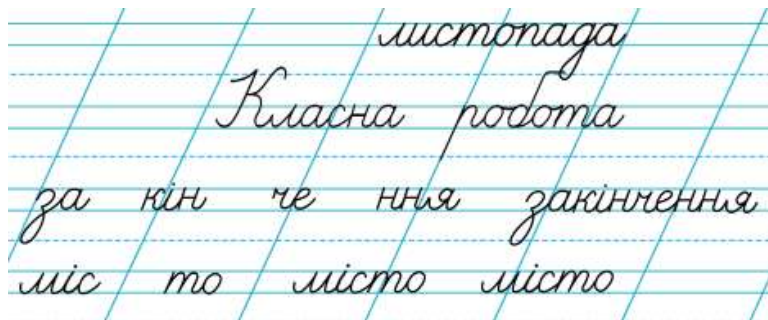 листопада
Класна робота
за кін че ння закінчення
міс то місто місто